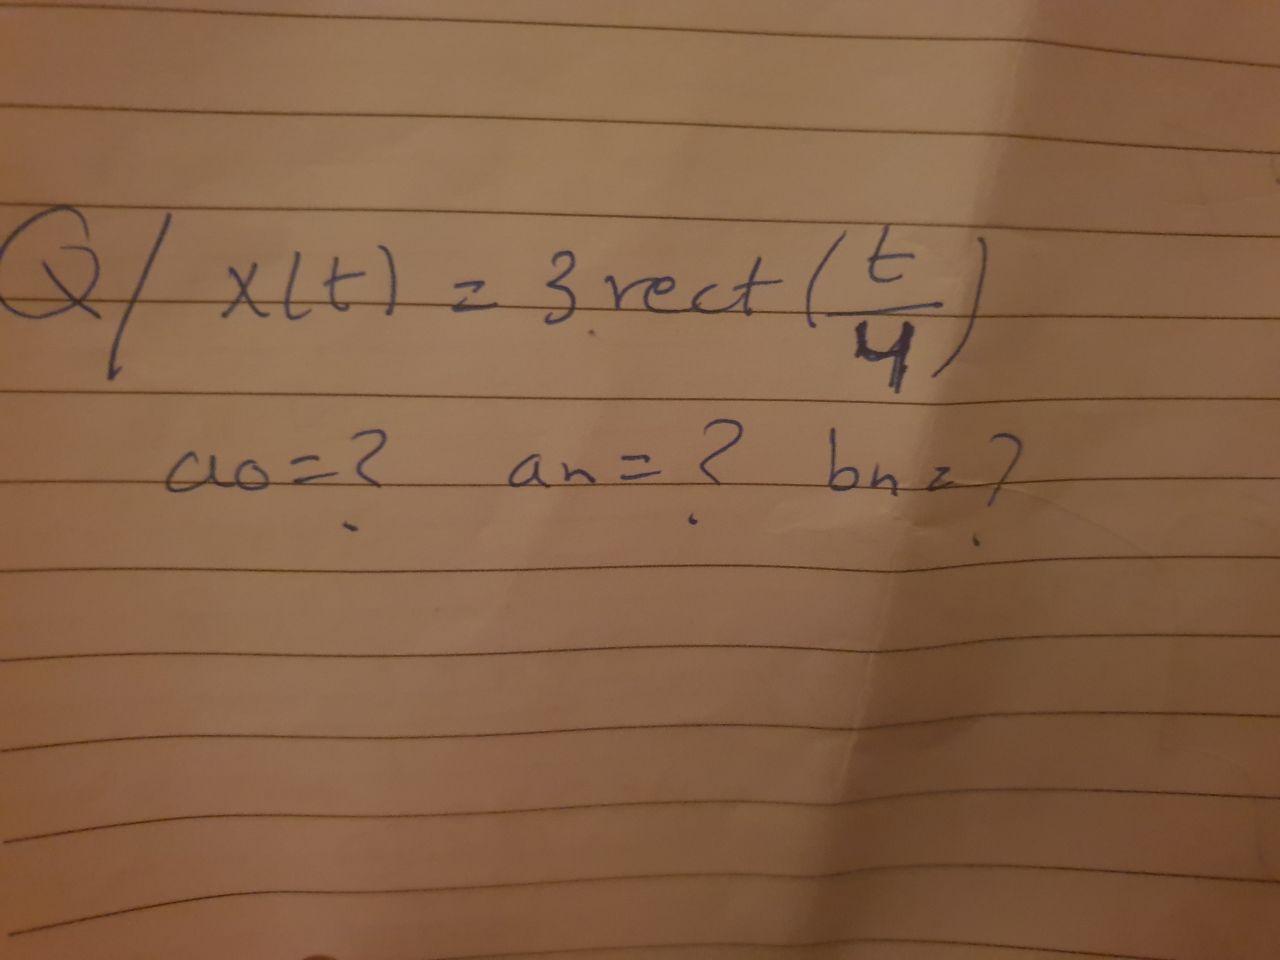 Q/ x(t) = 3 rect (t/4)
a0 = ? an = ? bn = ?